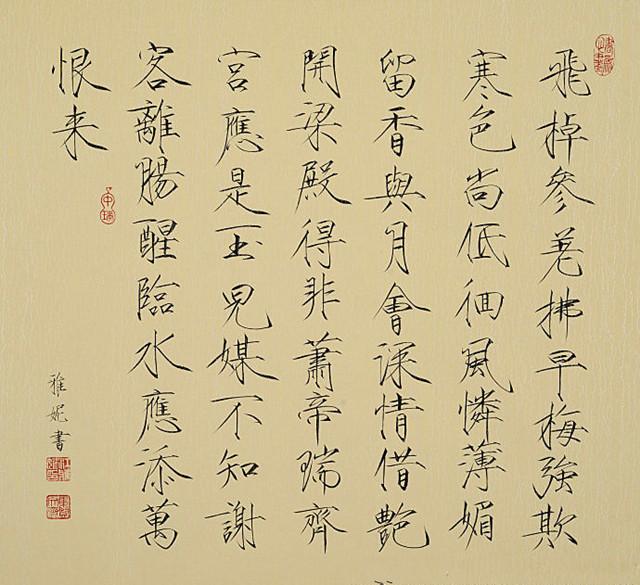 飛棹參差拂早梅強欺
寒色尚低徊風憐薄媚
留香與月會深情借艷
開梁殿得非蕭帝瑞齊
宮應是玉兒媒不知謝
客離腸醒臨水應添萬
恨来
雅妮書